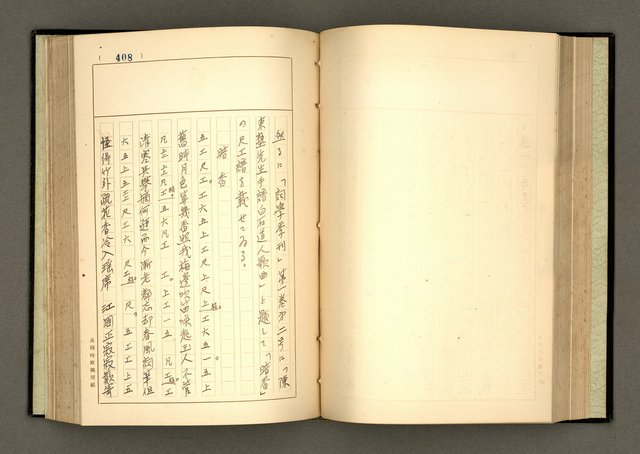 (408)
然るに「詞學季刊」第一卷第二号に「陳
東塾先生手譜白石道人歌曲」と題して「暗香」
の尺工譜を載せてゐる。
暗香
五工尺工工六五上工尺上尺上工六五一五上
舊時月色算幾番照我梅邊吹笛喚起玉人不管
清寒與攀摘何遜而今漸老都忘却春風詞筆但
六五上五工尺工六 尺工 尺。五工工上五
怪得竹外疏花香冷入瑤席 江國正寂寂歎寄